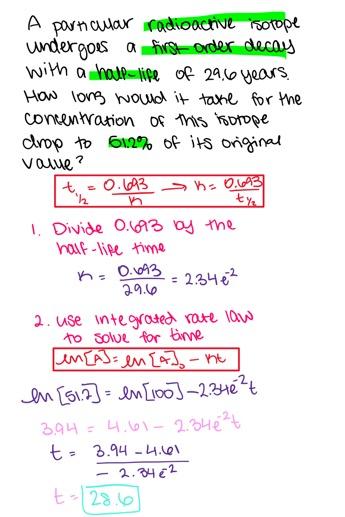 A particular radioactive isotope
undergoes a first-order decay
with a half-life of 29.6 years.
How long would it take for the
concentration of this isotope
drop to 51.2% of its original
value?
t1/2 = 0.693/k → k = 0.693/t1/2
1. Divide 0.693 by the
half-life time
k = 0.693/29.6 = 2.34e-2
2. use integrated rate law
to solve for time
ln[A] = ln[A]0 - kt
ln[51.2] = ln[100] - 2.34e-2t
3.94 = 4.61 - 2.34e-2t
t = 3.94 - 4.61
- 2.34e-2
t = 28.6